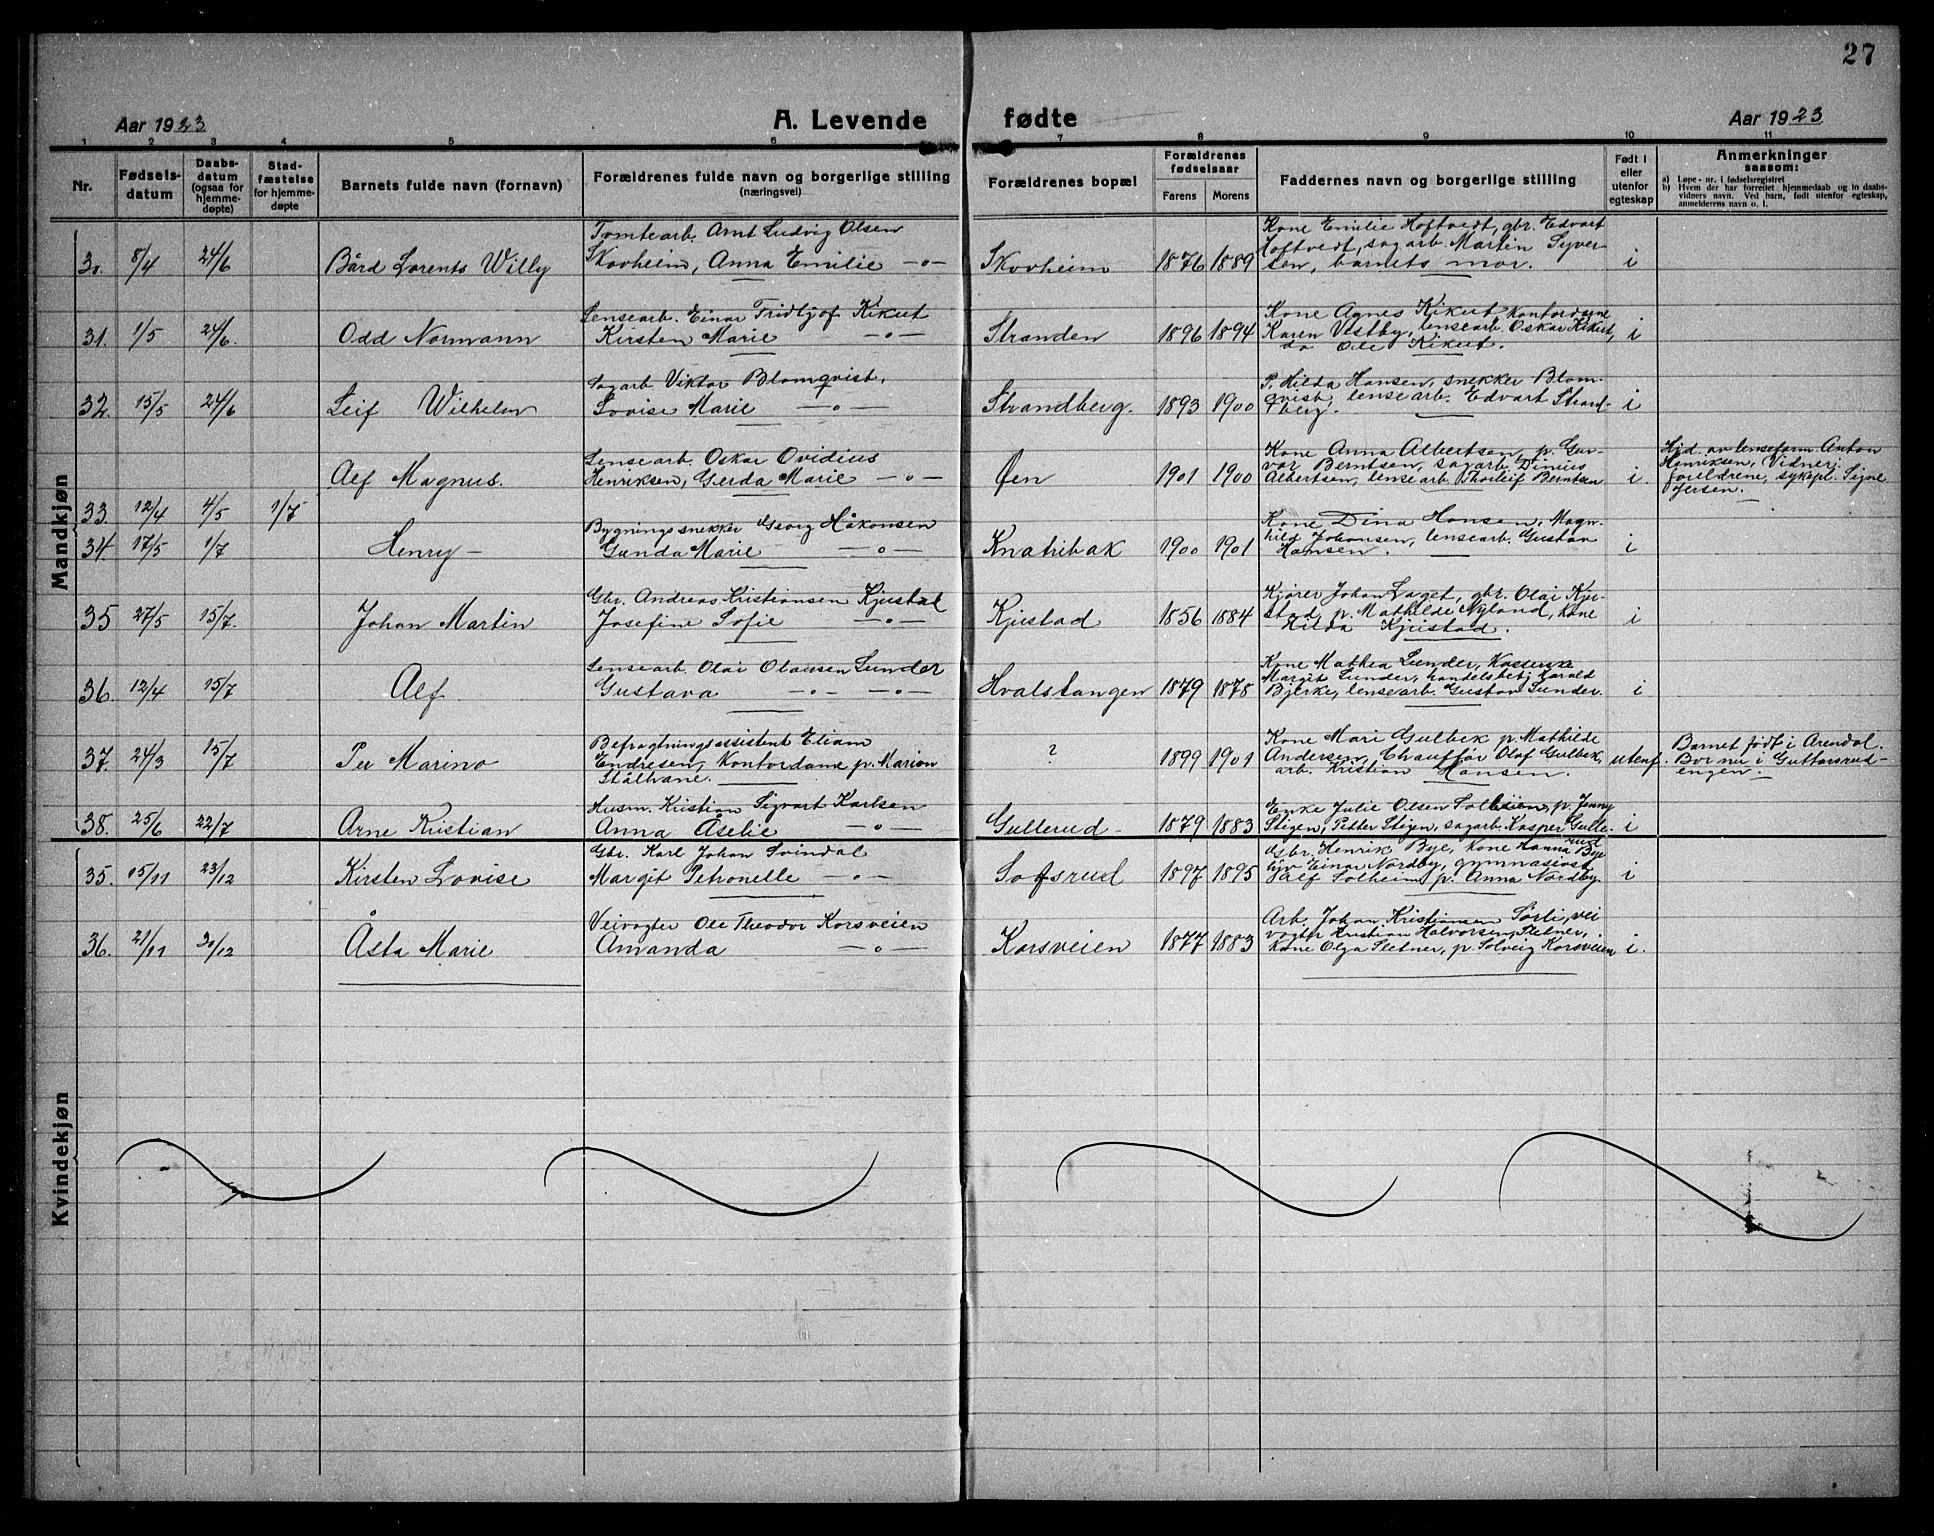 27
Aar 1923
A. Levende
fødte
Aar 1923
1 2 3 4 5 6 7 8 9 10 11
Nr.
Fødselsdatum
Daabsdatum (ogsaa for hjemmedøpte)
Stadfæstelse for hjemmedøpte
Barnets fulde navn (fornavn)
Forældrenes fulde navn og borgerlige stilling
(næringsvei)
Forældrenes bopæl
Forældrenes fødselsaar
Farens
Morens
Faddernes navn og borgerlige stilling
Født i eller utenfor egteskap
Anmerkninger
saasom:
a) Løpe-nr. i fødselsregistret
b) Hvem der har forrettet hjemmedaab og to daabsvidners navn. Ved barn, født utenfor egteskap, anmelderens navn o. l.
Mandkjøn
30. 8/4 24/6 Bård Lorents Willy
Tomtearb. Arnt Ludvig Olsen
Skovheim, Anna Emilie -"-
Skovheim 1876 1889
Kone Emilie Hoftvedt, gbr. Edvart
Hoftvedt, sagarb. Martin Syver-
sen, barnets mor. i
31. 1/5 24/6. Odd Normann
Lensearb. Einar Fridtjof Kikut
Kirsten Marie -"-
Stranden 1896 1894
Kone Agnes Kikut kontordame
Karen Vestby, lensearb. Oskar Kikut,
do Ole Kikut. i
32. 15/5 24/6 Leif Wilhelm
Sagarb Viktor Blomqvist.
Lovise Marie -"-
Strandberg. 1893 1900
P. Hilda Hansen, snekker Blom-
qvist, lensearb. Edvart Strand-
berg. i
33. 12/4 4/5 1/7 Alf Magnus.
Lensearb. Oskar Ovidius
Henriksen, Gerda Marie -"-
Øen 1901 1900
Kone Anna Albertsen, p. Gun-
vor Berntsen, sagarb. Dinius
Albertsen, lensearb. Thorleif Berntsen i.
Hjd. av lenseform. Anton
Henriksen, Vidner:
foreldrene, sykepl. Signe
34. 17/5 1/7 Henry -
Bygningssnekker Georg Håkonsen
Gunda Marie -"-
Knatribak 1900 1901
Kone Dina Hansen, Magn-
hild Johansen, lensearb. Gustav
Hansen. i
35 27/5 15/7. Johan Martin
Gbr. Andreas Kristiansen Kjustad
Josefine Sofie -"-
Kjustad 1856 1884
Kjører Johan Laget, gbr. Olai Kju-
stad p. Mathilde Nyland, kone
Hilda Kjustad. i
36. 12/4 15/7 Alf
Lensearb. Olai Olausen Lunder
Gustava -"- -"-
Hvalstangen 1879 1878
Kone Mathea Lunder, Kasserske
Margit Lunder, handelsbetj. Harald
Bjerke, lensearb. Gustav Lunder. i
37. 24/3 15/7 Per Marino
Befragtningsassistent Eliam
Endresen, Kontordame p. Marion
Stålhane.
? 1899 1901
Kone Mari Gulbek p. Mathilde
Andersen, Chauffør Olaf Gulbek,
arb. Kristian Hansen. utenf.
Barnet født i Arendal.
Bor nu i Guttorsrud-
engen.
38. 25/6 22/7 Arne Kristian
Husm. Kristian Sigvart Karlsen
Anna Åselie -"-
Gullerud - 1879 1883
Enke Julie Olsen Solbsien, p. Jenny
Stigen, Petter Stigen, sagarb. Kasper Gulle-
rud i
Kvindekjøn
35. 15/11 23/12 Kirsten Lovise
Gbr. Karl Johan Svindal
Margit Petronelle -"-
Sofsrud 1897 1895
Gbr. Henrik Bye, kone Hanna Bye
Einar Nordby, gymnasiast
Alf Solheim, p. Anna Nordby. i
36. 21/11 30/12 Åsta Marie
Veivogter Ole Theodor Korsveien
Amanda -"-
Korsveien 1877 1883
Arb. Johan Kristiansen Sørli, vei
vogter Kristian Halvorsen Sletner,
Kone Olga Sletner, p. Solveig Korsveien i.